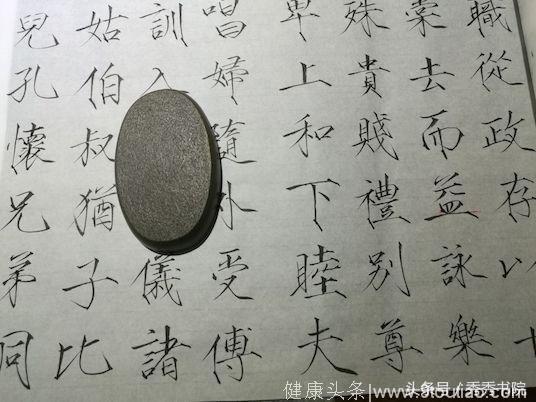 職從政存以
棠去而益詠樂
殊貴賤禮別尊
卑上和下睦夫
唱婦隨外受傅
訓入儀諸
姑伯叔猶子比
兒孔懷兄弟同
健康头条|www.
头条号/秀秀书院